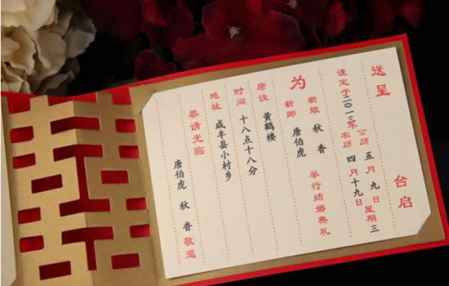 送呈 台启
谨定于二〇一二年 公历 五月九日 星期三
农历 四月十九日
为
新娘 秋香 举行结婚典礼
新郎 唐伯虎
席设 黄鹤楼
时间 十八点十八分
地址 咸丰县小村乡
恭请光临
唐伯虎 秋香 敬邀